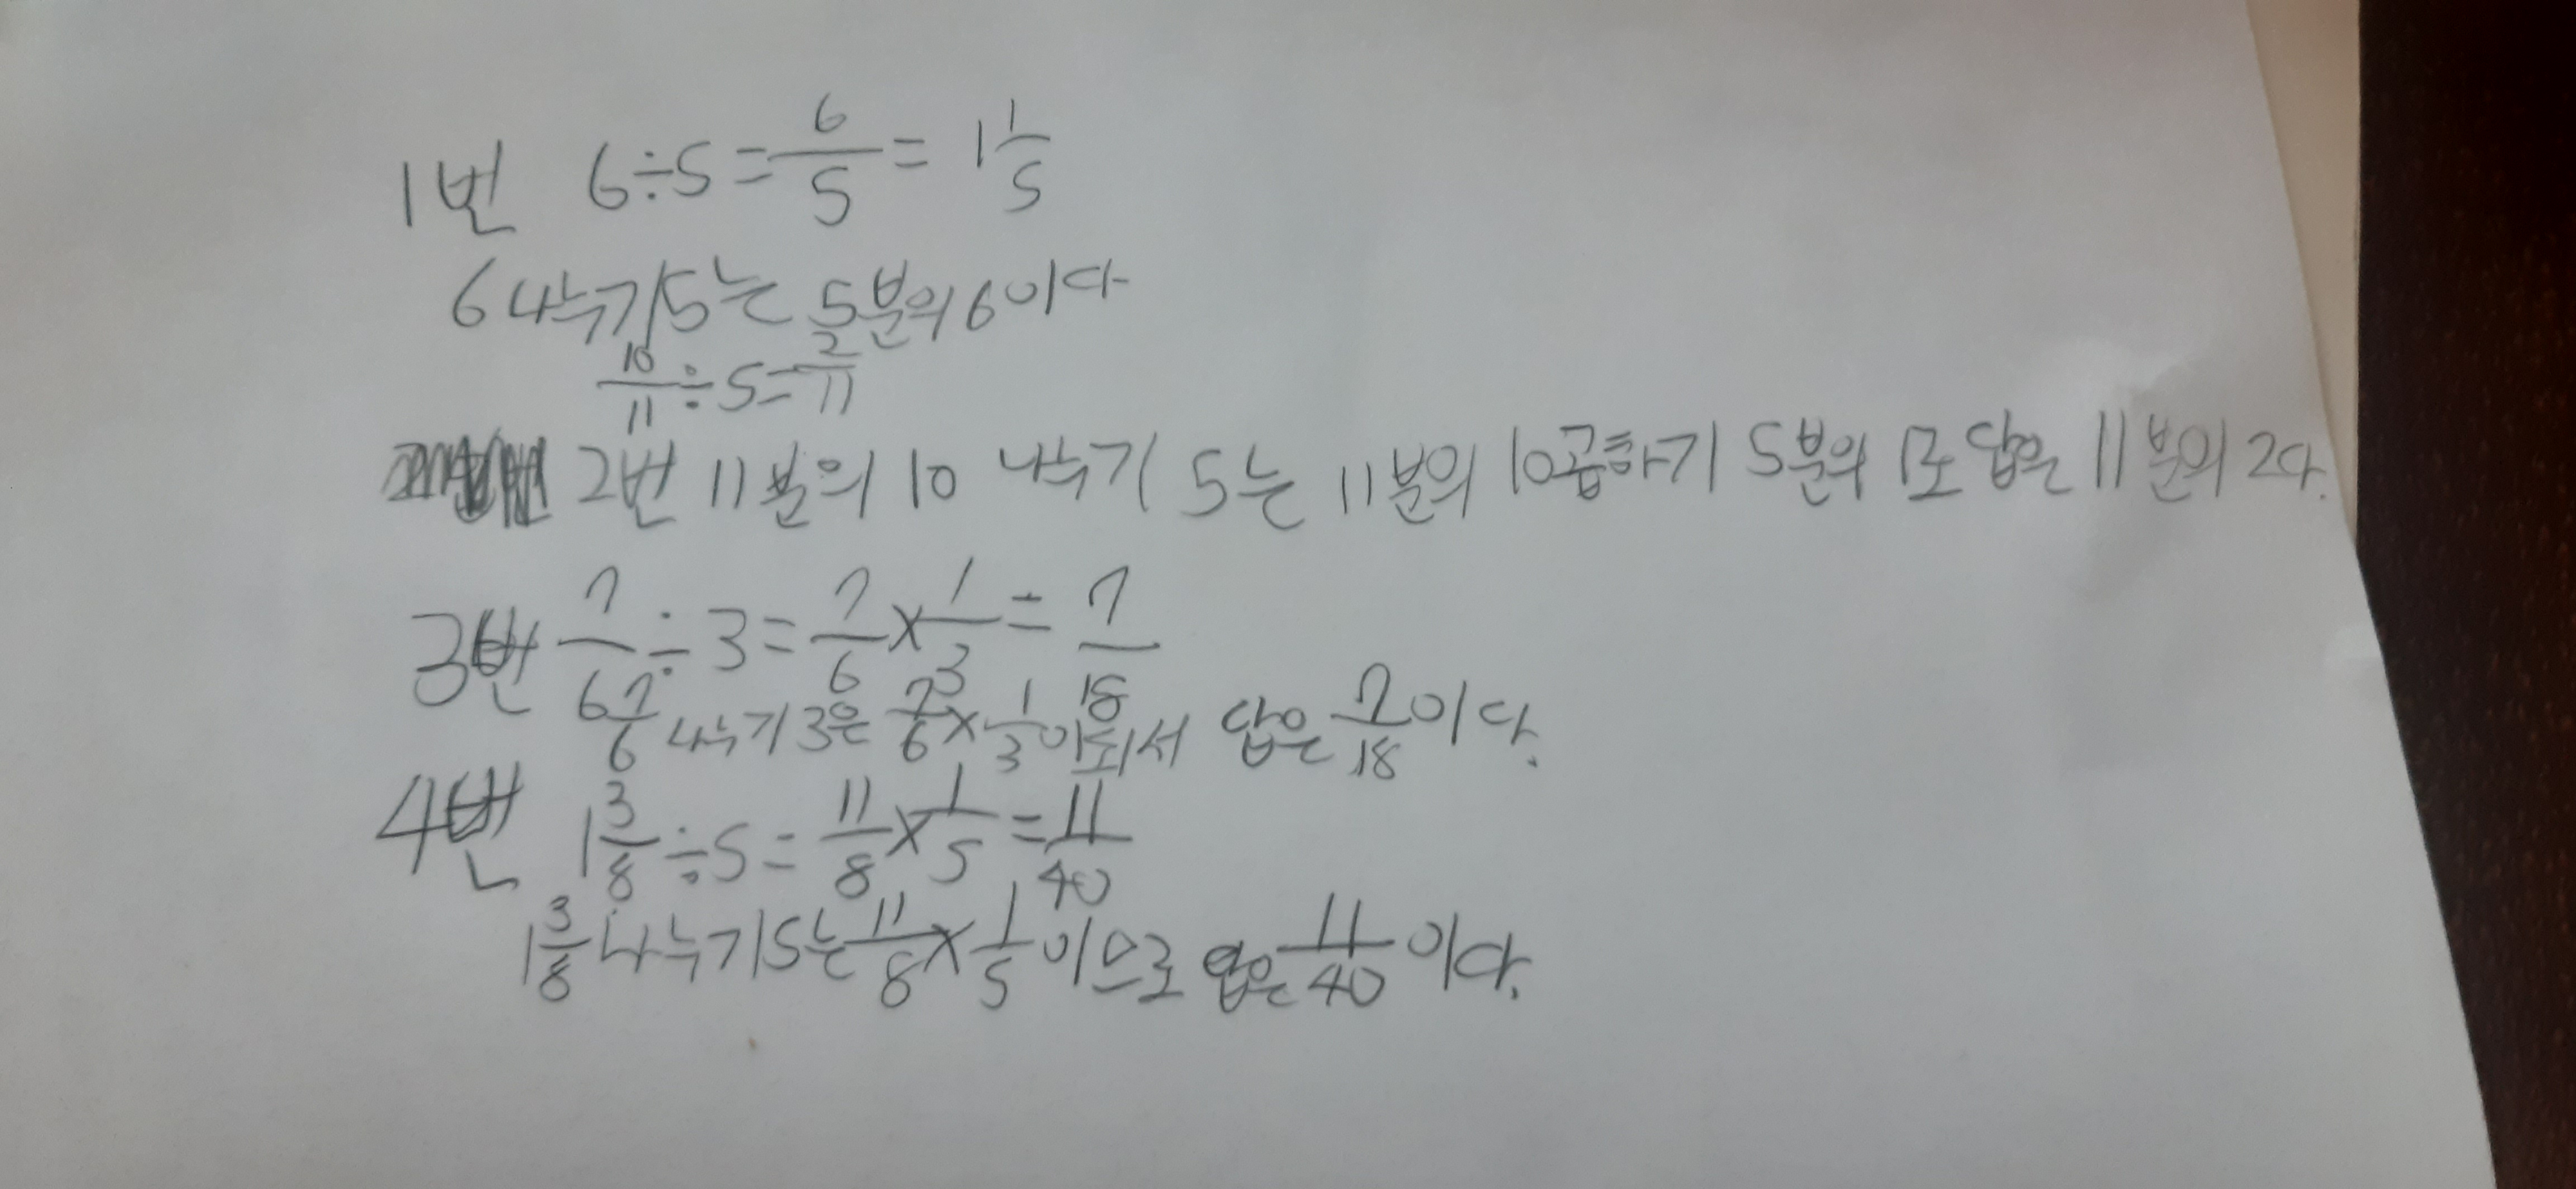 1번 6÷5=6/5=1 1/5
6 나누기 5는 5분의 6이다
10/11÷5=2/11
2번 11분의 10 나누기 5는 11분의 10곱하기 5분의 1로 답은 11분의 2다.
3번 7/6÷3=7/6×1/3=7/18
7/6 나누기 3은 7/6×1/3이되서 답은 7/18이다.
4번 1 3/8÷5=11/8×1/5=11/40
1 3/8 나누기 5는 11/8×1/5이므로 답은 11/40이다.